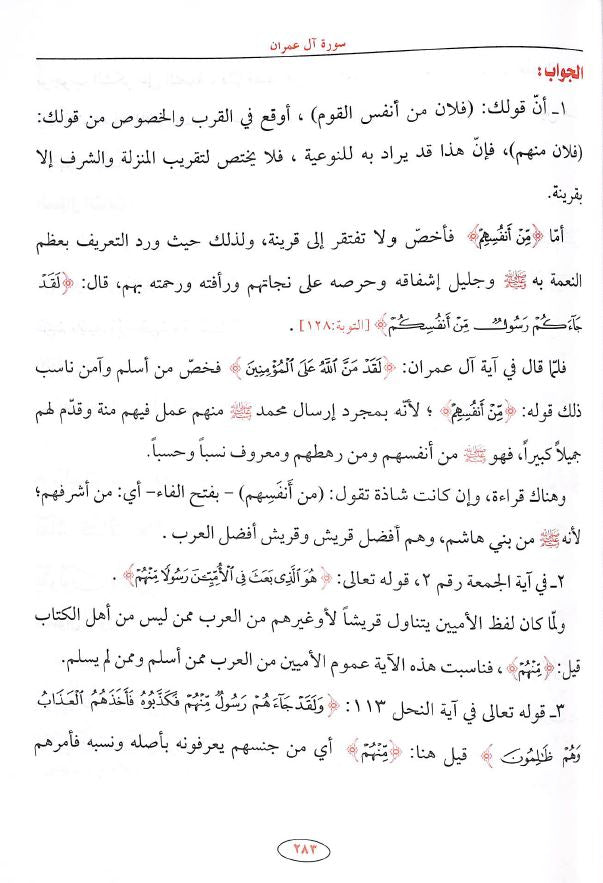 سورة آل عمران
الجواب:
١ـ أنّ قولك: (فلان من أنفس القوم) ، أوقع في القرب والخصوص من قولك:
(فلان منهم)، فإنّ هذا قد يراد به للنوعية ، فلا يختص لتقريب المنزلة والشرف إلا
بقرينة.
أمّا ﴿مِّنْ أَنفُسِهِمْ﴾ فأخصّ ولا تفتقر إلى قرينة، ولذلك حيث ورد التعريف بعظم
النعمة به ﷺ وجليل إشفاقه وحرصه على نجاتهم ورأفته ورحمته بهم، قال: ﴿لَقَدْ
جَآءَكُمْ رَسُولٌ مِّنْ أَنفُسِكُمْ﴾ [التوبة:١٢٨] .
فلمّا قال في آية آل عمران: ﴿لَقَدْ مَنَّ ٱللَّهُ عَلَى ٱلْمُؤْمِنِينَ﴾ فخصّ من أسلم وآمن ناسب
ذلك قوله: ﴿مِّنْ أَنفُسِهِمْ﴾ ؛ لأنّه بمجرد إرسال محمد ﷺ منهم عمل فيهم منة وقدّم لهم
جميلاً كبيراً، فهو ﷺ من أنفسهم ومن رهطهم ومعروف نسباً وحسباً.
وهناك قراءة، وإن كانت شاذة تقول: (من أَنفَسِهم) - بفتح الفاء- أي: من أشرفهم؛
لأنه ﷺ من بني هاشم، وهم أفضل قريش وقريش أفضل العرب .
٢ـ في آية الجمعة رقم ٢، قوله تعالى: ﴿هُوَ ٱلَّذِى بَعَثَ فِى ٱلْأُمِّيِّـۧنَ رَسُولًا مِّنْهُمْ﴾ .
ولمّا كان لفظ الأميين يتناول قريشاً لأوغيرهم من العرب ممن ليس من أهل الكتاب
قيل: ﴿مِّنْهُمْ﴾ ، فناسبت هذه الآية عموم الأميين من العرب ممن أسلم وممن لم يسلم.
٣ـ قوله تعالى في آية النحل ١١٣: ﴿وَلَقَدْ جَآءَهُمْ رَسُولٌ مِّنْهُمْ فَكَذَّبُوهُ فَأَخَذَهُمُ ٱلْعَذَابُ
وَهُمْ ظَـٰلِمُونَ﴾ قيل هنا: ﴿مِّنْهُمْ﴾ أي من جنسهم يعرفونه بأصله ونسبه فأمرهم
٢٨٣